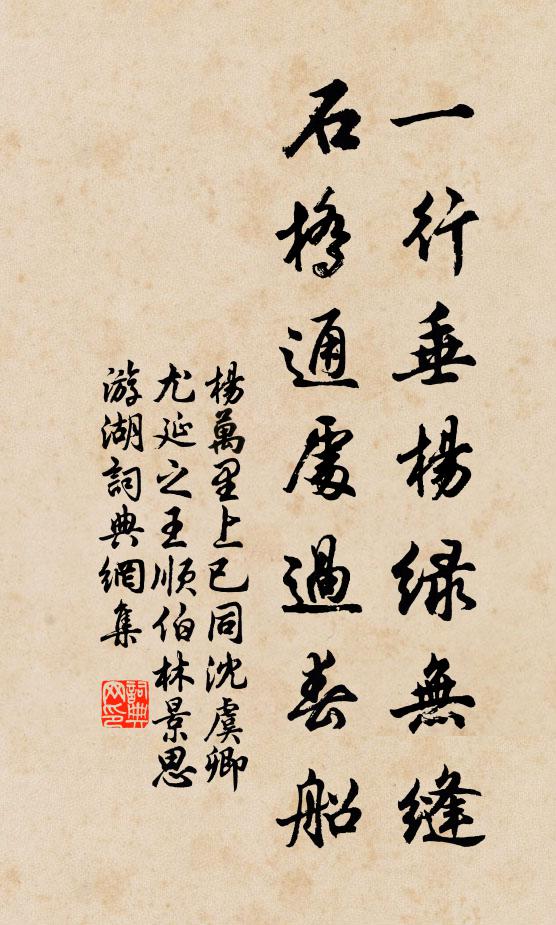 一行垂楊緑無縫
石橋通處過春船
楊萬里上巳同沈虞卿
尤延之王順伯林景思
游湖詞典網集
詞典网印